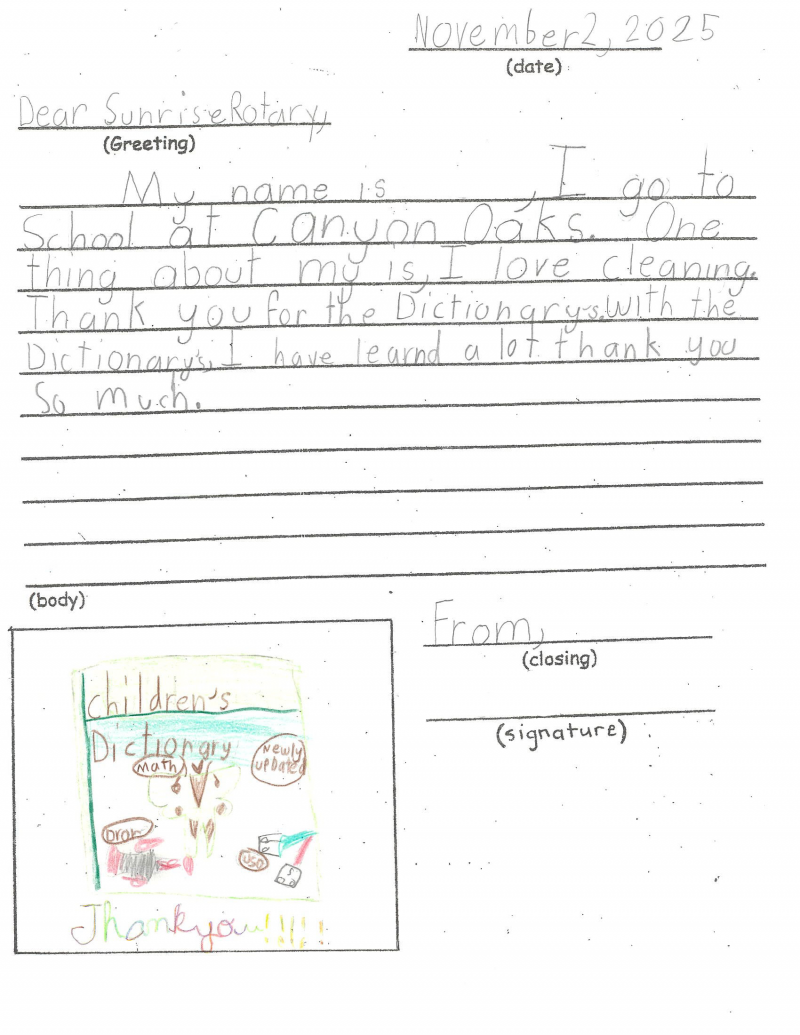 November 2, 2025
(date)
Dear Sunrise Rotary,
(Greeting)
My name is , I go to
School at Canyon Oaks. One
thing about my is, I love cleaning.
Thank you for the Dictionarys. With the
Dictionarys, I have learnd a lot thank you
So much.
(body)
From,
(closing)
(signature)
children's
Dictionary
Math
Newly
updated
Draw
USA
Thank you!!!!!